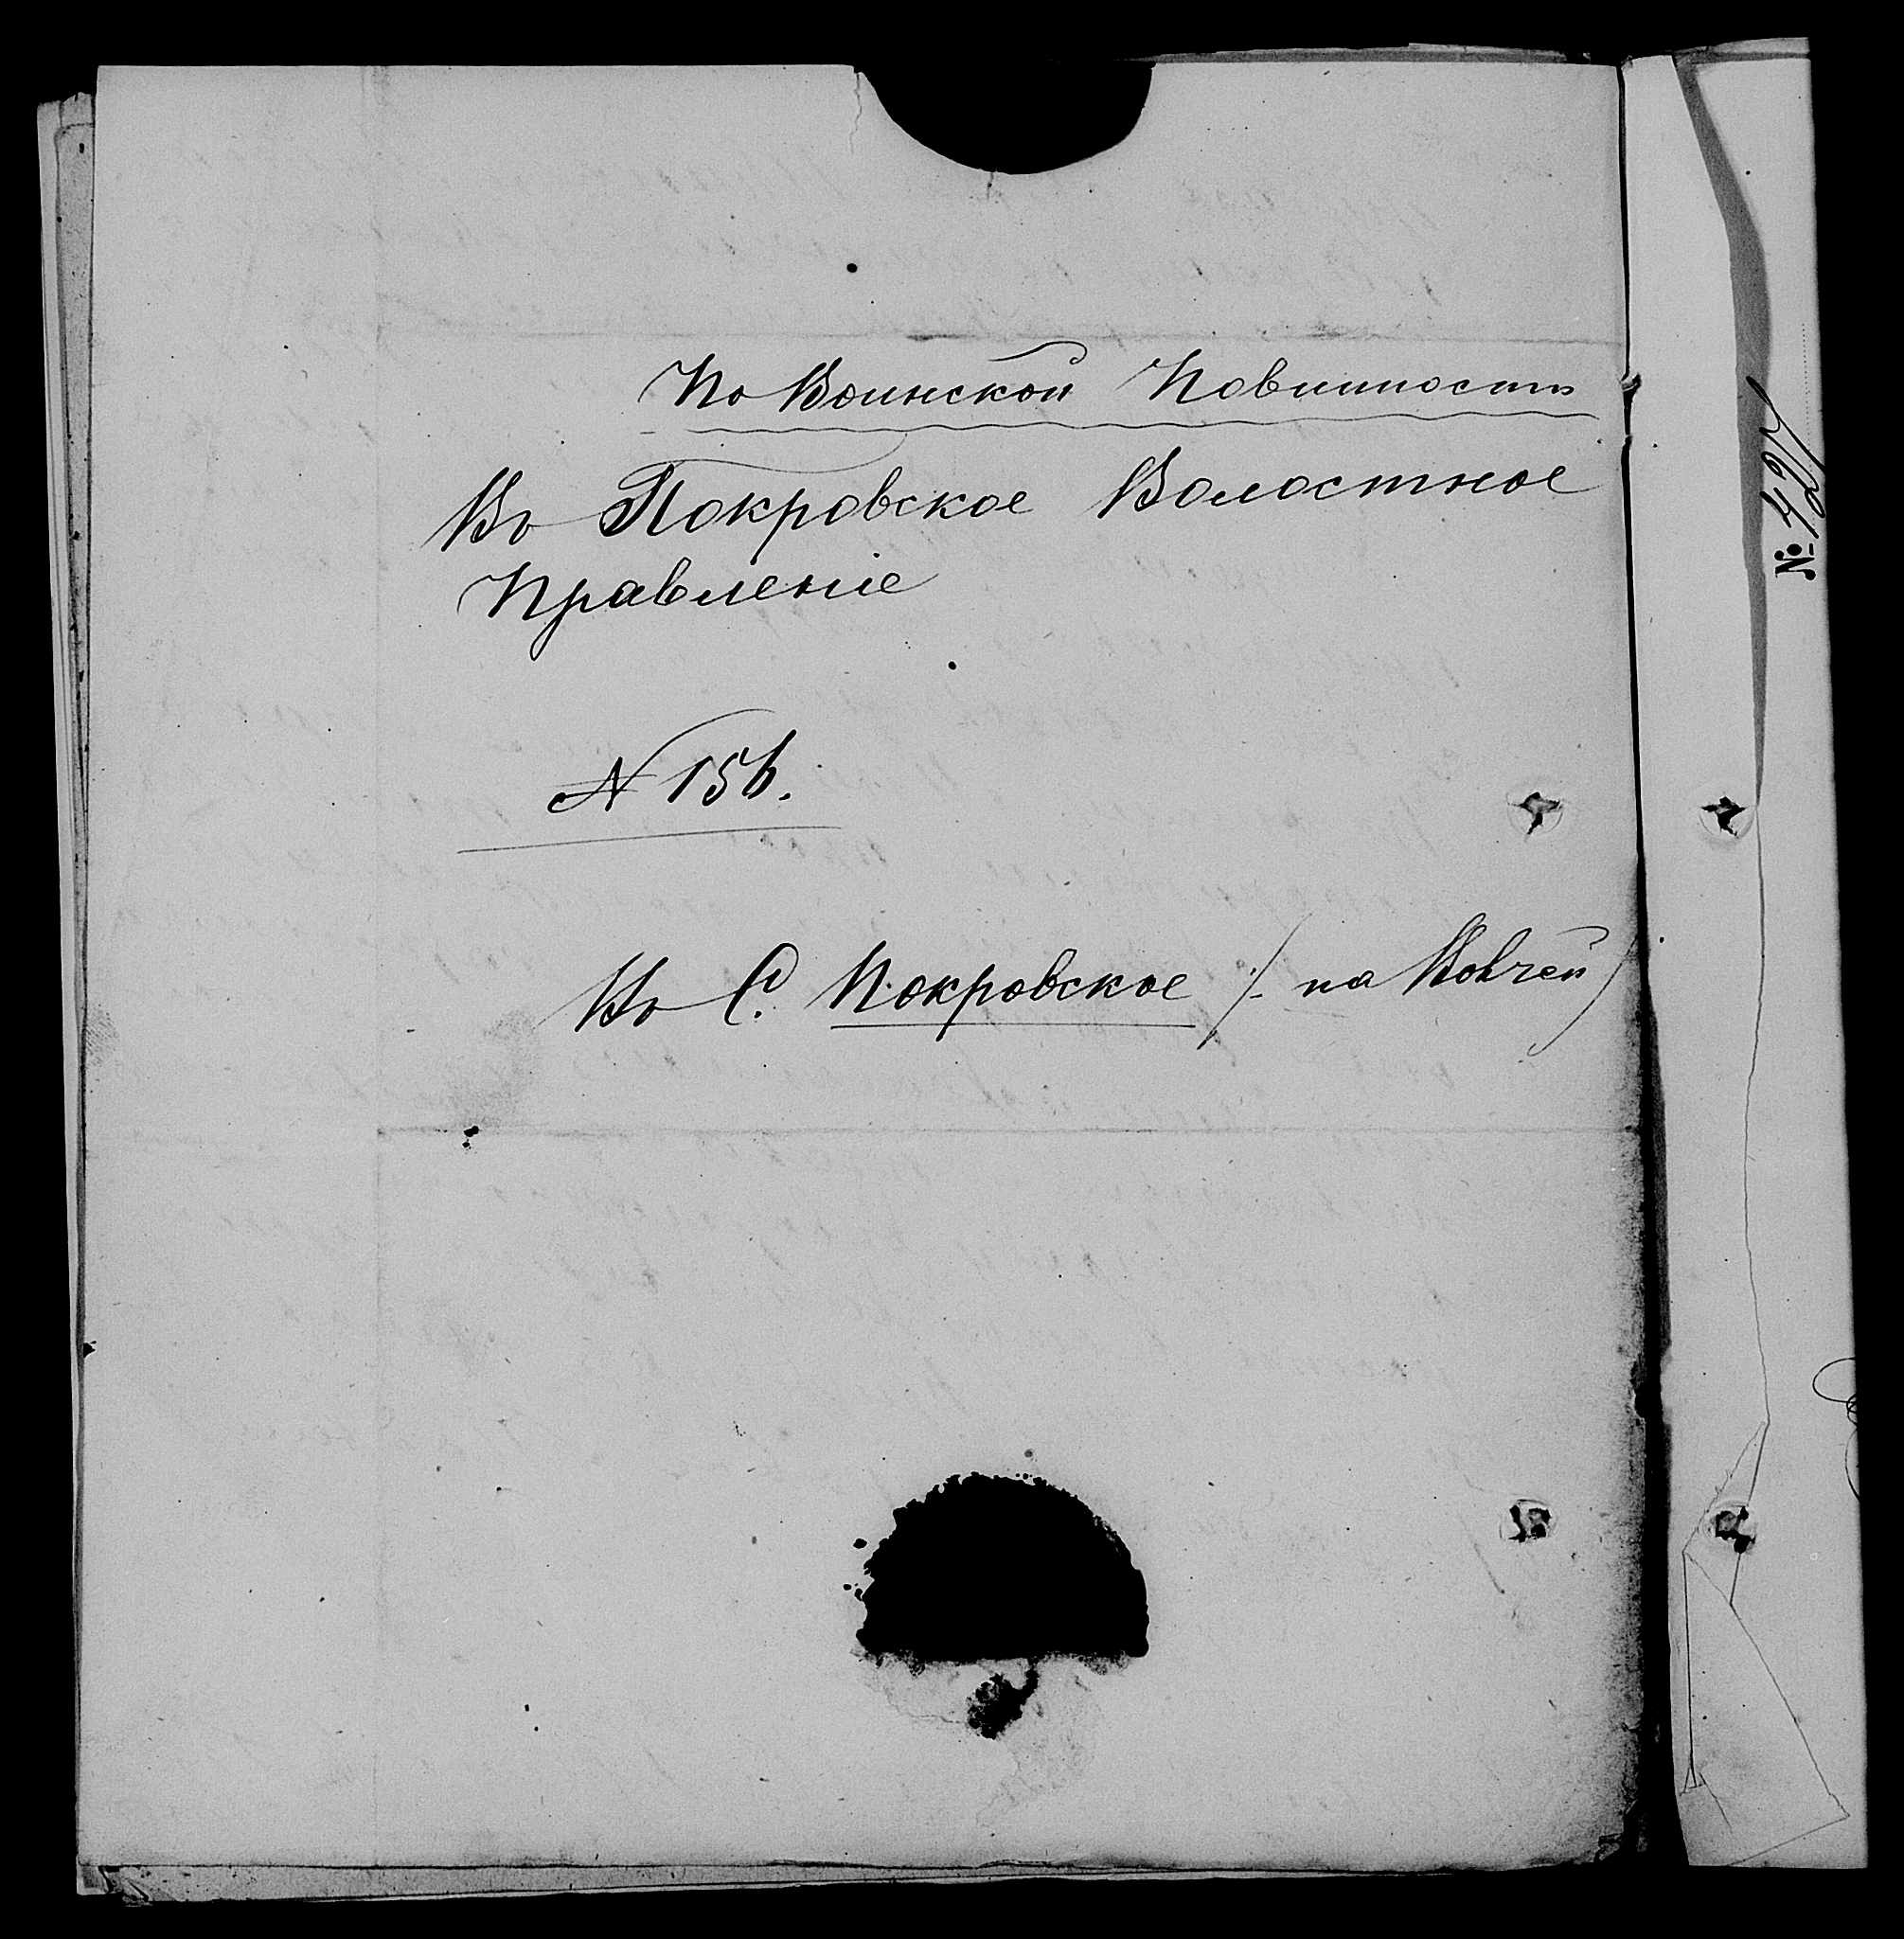 По Воинской Повинности
Въ Покровское Волостное
Правленіе
N 156.
Въ С. Покровское /- на Вовчей)
№ 427